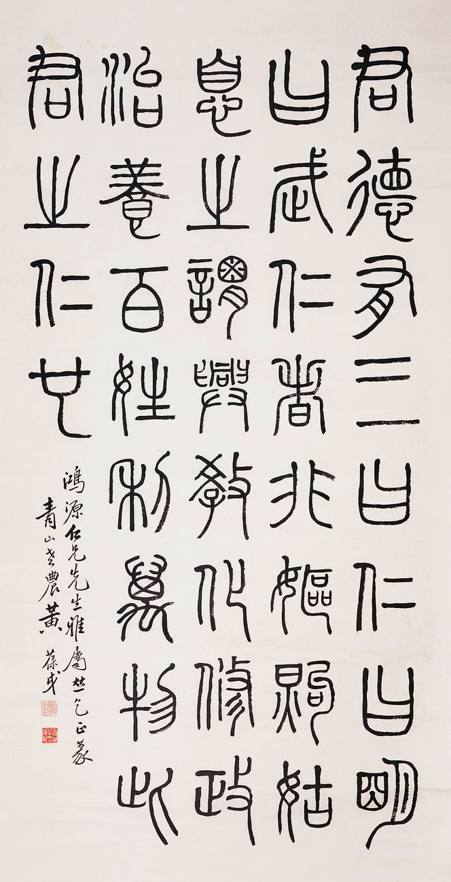 君德有三曰仁曰明
曰武仁者非嫗煦姑
息之謂興教化修政
治養百姓利萬物此
君之仁也
鴻源仁兄先生雅屬並乞正篆
青山老農黃葆戉